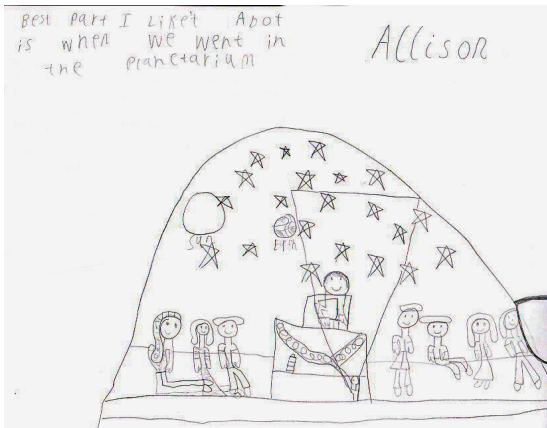 Best Part I Like't Abot
is when we went in
the Planetarium
Allison
Sun
Erth